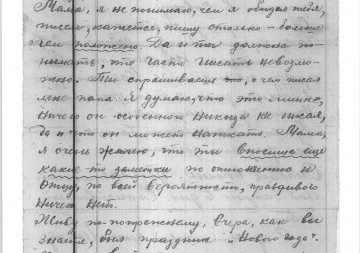 Мама, я не понимаю, чем я обидел тебя,
писем, кажется, пишу столько – больше
чем положено. Да и ты должна по-
нимать, что часто писать невозмо-
жно. Ты спрашиваешь то, о чем писал
мне папа я думаю, что это лишне,
ничего он особенного никогда не писал,
да и что он может написать. Мама,
я очень жалею, что ты вносишь еще
какие то заметки по отношению к
Отцу, по всей вероятности, правдивого
ничего нет.
Живу по-прежнему, вчера, как вы
знаете, был праздник „Нового года".